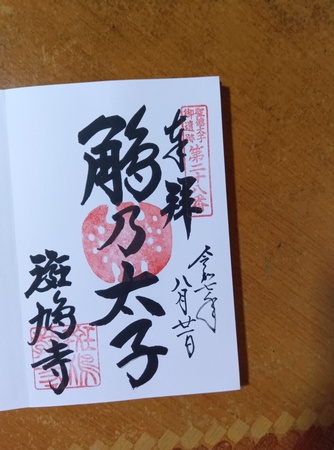 奉拝
聖徳太子
御遺跡
第二十八番
令和七年
八月廿一日
鵤乃太子
斑鳩寺